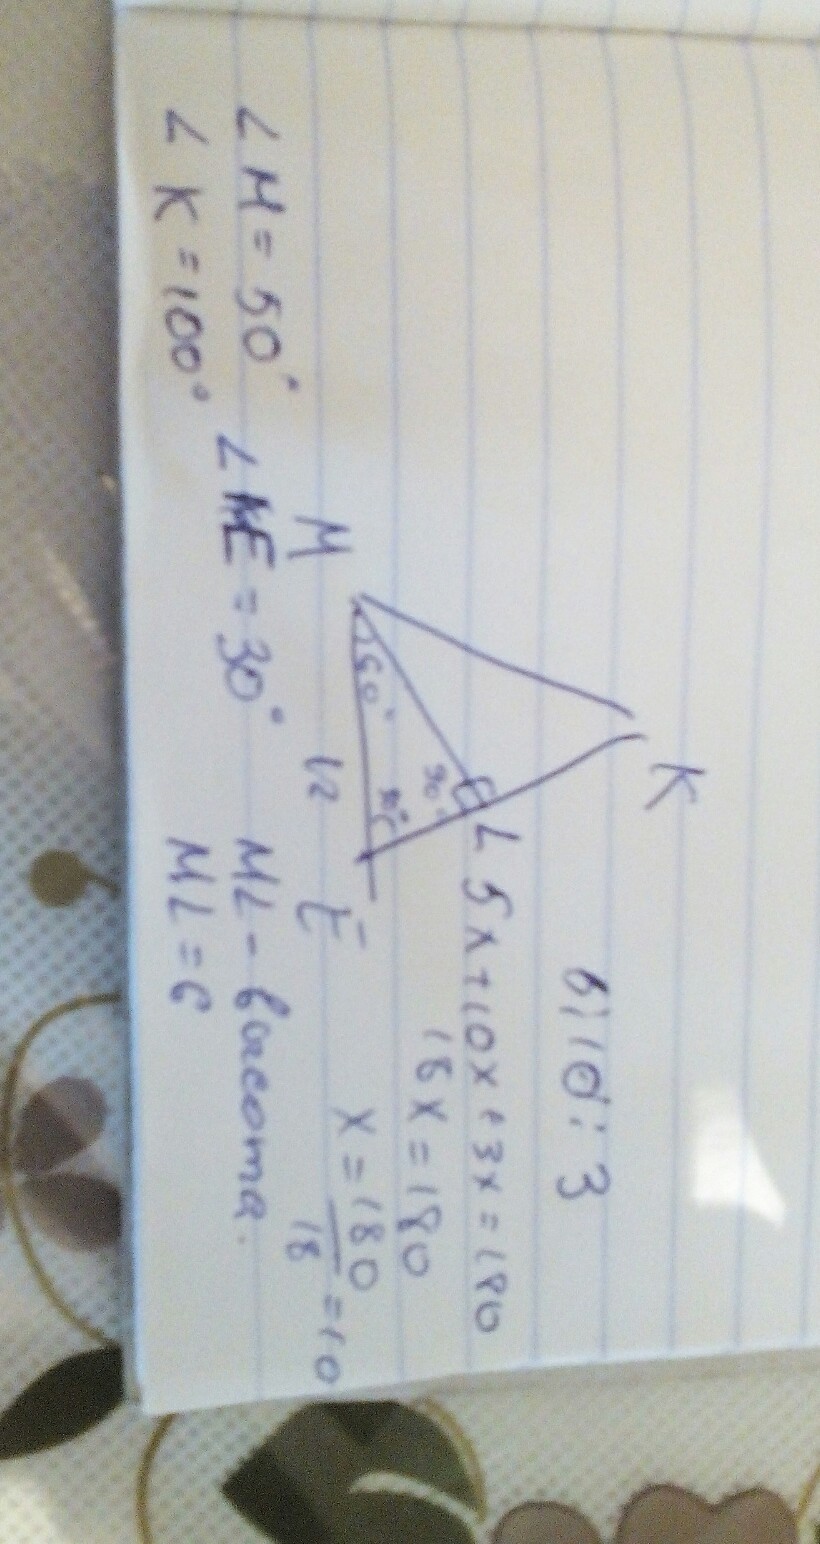 K
5:10:3
L 5x+10x+3x=180
18x=180
x=180/18=10
M
60°
90°
30°
12
E
∠M=50°
∠K=100°
∠E=30°
ML-высота.
ML=6